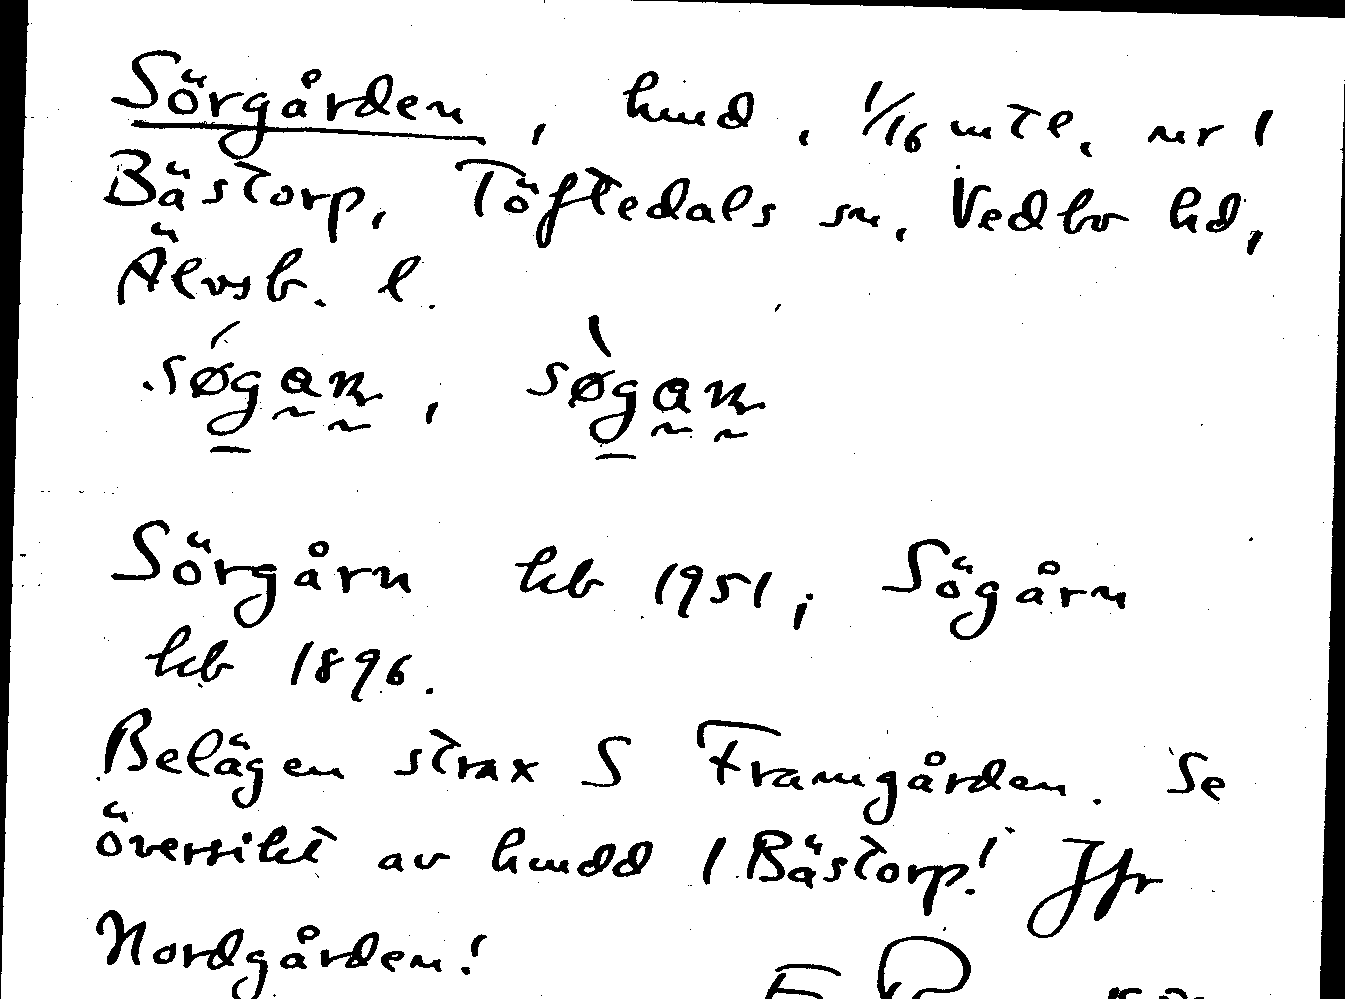 Sörgården, hmd, 1/16 mtl, nr 1
Bästorp, Töftedals sn, Vedbo hd,
Älvsb. l.
Sörgårn kb 1951; Sögårn
kb 1896.
Belägen strax S Framgården. Se
översikt av hmdd 1 Bästorp! Jfr
Nordgården!